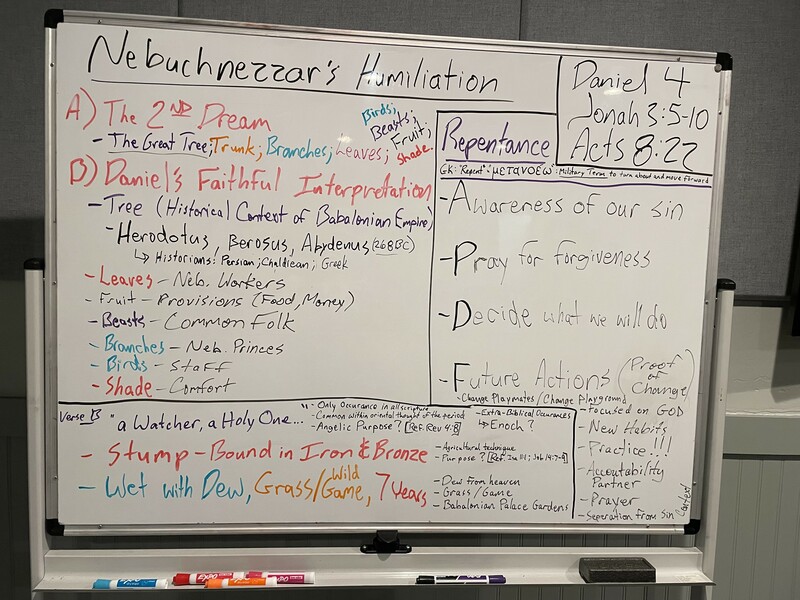 Nebuchnezzar's Humiliation
Daniel 4
Jonah 3:5-10
Acts 8:22
A) The 2ND Dream
- The Great Tree; Trunk; Branches; Leaves;
Birds;
Beasts;
Fruit;
Shade.
B) Daniel's Faithful Interpretation
- Tree (Historical Context of Babalonian Empire)
- Herodotus, Berosus, Abydenus (268 BC)
↳ Historians: Persian; Chaldiean; Greek
- Leaves - Neb. Workers
- Fruit - Provisions (Food, Money)
- Beasts - Common Folk
- Branches - Neb. Princes
- Birds - Staff
- Shade - Comfort
Repentance
GK: "Repent": "μετανοέω": Military Term to turn about and move forward
- Awareness of our sin
- Pray for forgiveness
- Decide what we will do
- Future Actions (Proof of Change)
- Change Playmates/Change Playground
- Focused on GOD
- New Habits
- Practice!!!
- Accoutability
Partner
- Prayer
- Seperation from Sin
Context
Verse 13 "a Watcher, a Holy One..."
- Only Occurance in all scripture
- Common within oriental thought of the period
- Angelic Purpose? [Ref. Rev 4:8]
- Extra-Biblical Occurances
↳ Enoch?
- Stump - Bound in Iron & Bronze
- Agricultural technique
- Purpose? [Ref. Isa 11:1; Job 14:7-9]
- Wet with Dew, Grass/Wild Game, 7 Years
- Dew from heaven
- Grass/Game
- Babalonian Palace Gardens
EXPO
EXPO
EXPO
EXPO